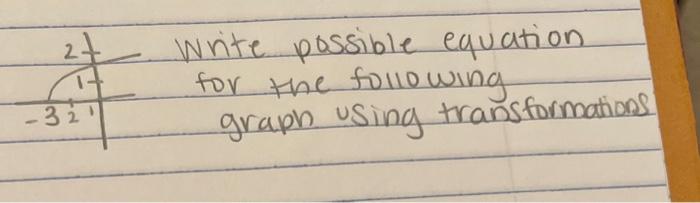 2 Write possible equation
1 for the following
-3 2 1 graph using transformations